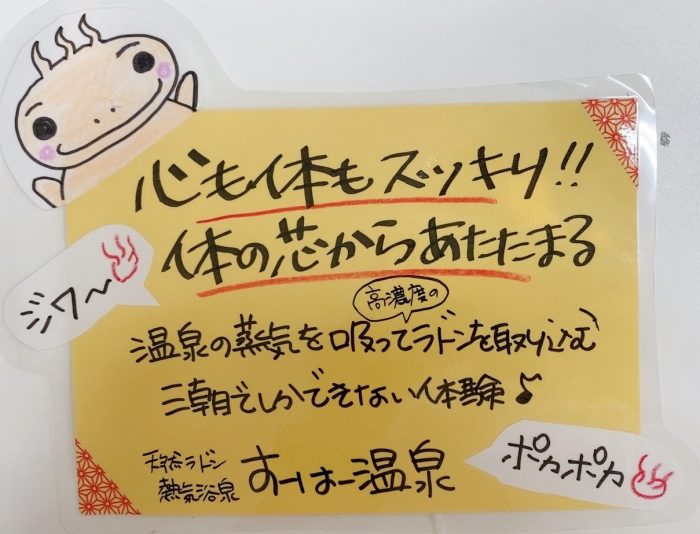 心も体もスッキリ!!
体の芯からあたたまる
ジワ〜♨
高濃度の
温泉の蒸気を吸ってラドンを取り込む
三朝でしかできない体験♪
天然ラドン
熱気浴泉
すーはー温泉
ポカポカ♨